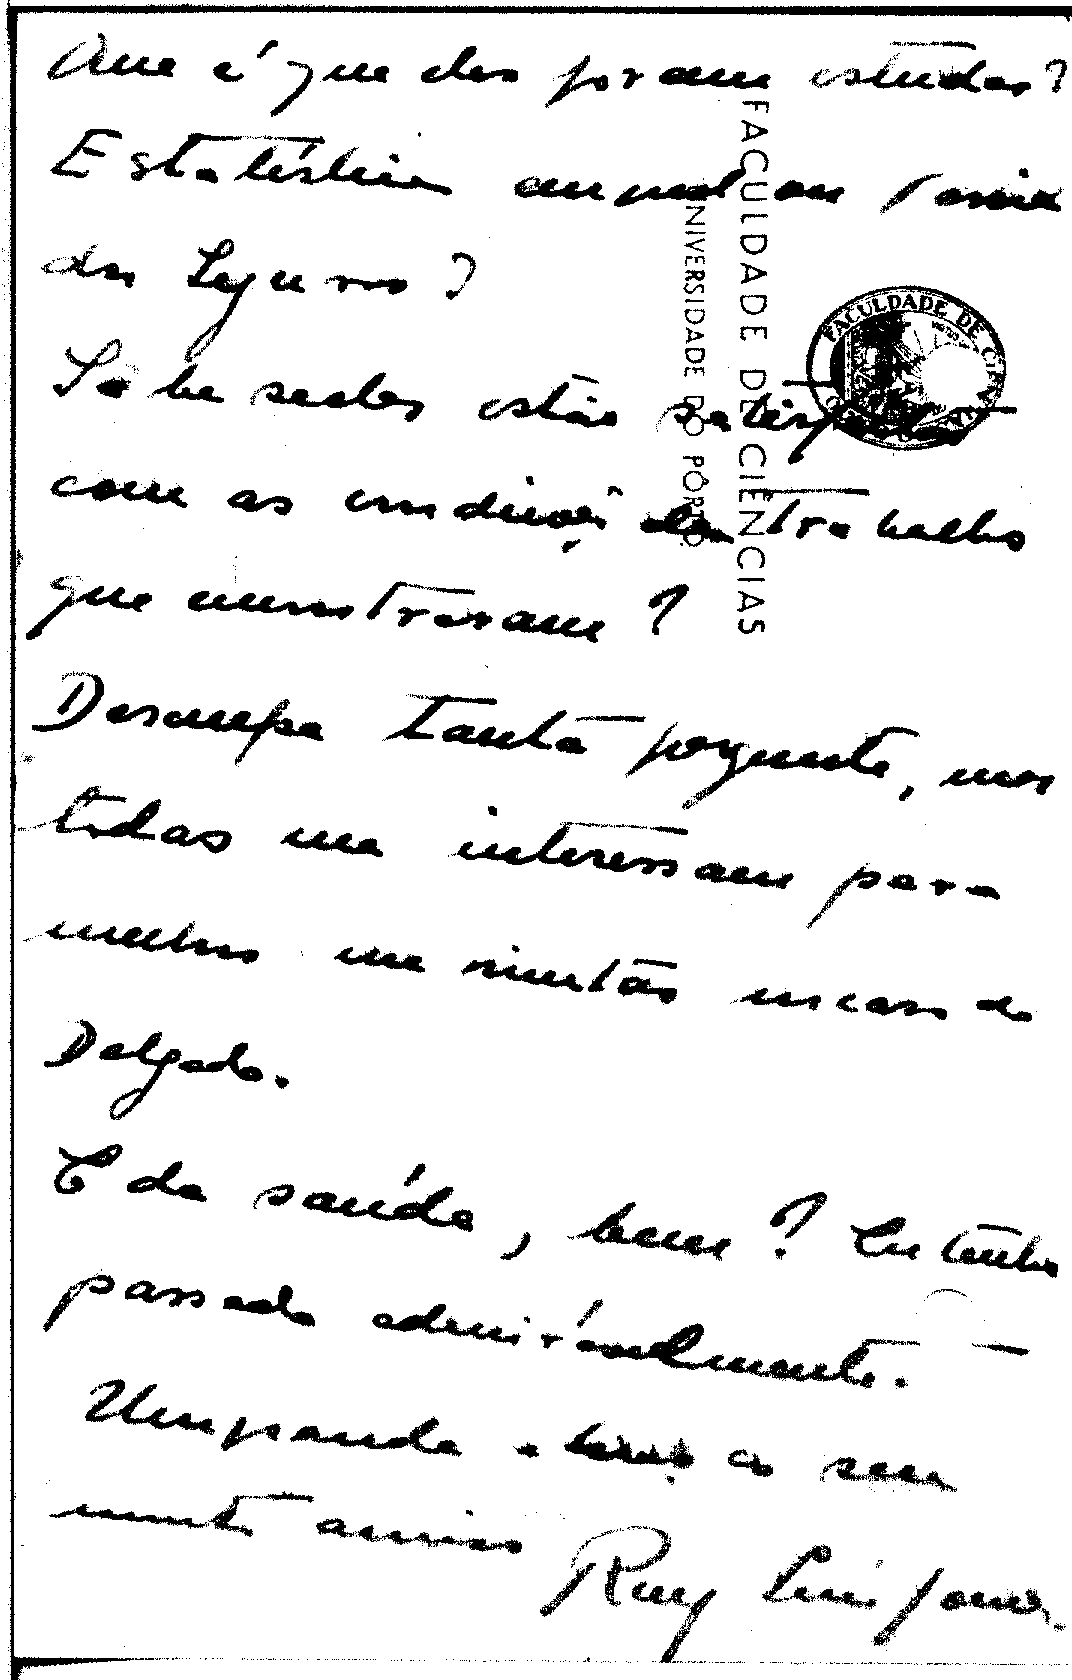 Que é que eles foram estudar?
Estatística ou Teoria
dos Seguros?
Sabe se eles estão satisfeitos
com as condições de trabalho
que encontraram?
Desculpe tanta pergunta, mas
todas me interessam para
melhor me orientar no caso do
Delgado.
E da saúde, bem? Eu tenho
passado admiràvelmente. —
Um grande abraço do seu
muito amigo Ruy Luís Gomes.
FACULDADE DE CIÊNCIAS
UNIVERSIDADE DO PÔRTO
FACULDADE DE CIÊN